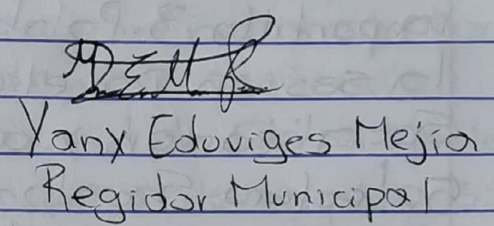 Yany Eduviges Mejia
Regidor Municipal